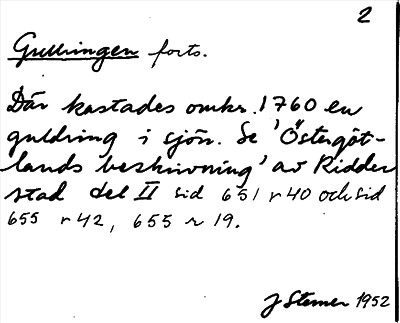 2
Gullringen forts.
Där kastades omkr. 1760 en
guldring i sjön. Se 'Östergöt-
lands beskrivning' av Ridder
stad del II sid 651 r 40 och sid
655 r 42, 655 r 19.
J Sterner 1952